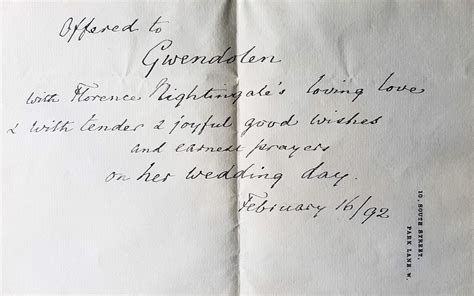 Offered to
Gwendolen
with Florence Nightingale's loving love
& with tender & joyful good wishes
and earnest prayers
on her wedding day.
February 16/92
10, SOUTH STREET,
PARK LANE. W.